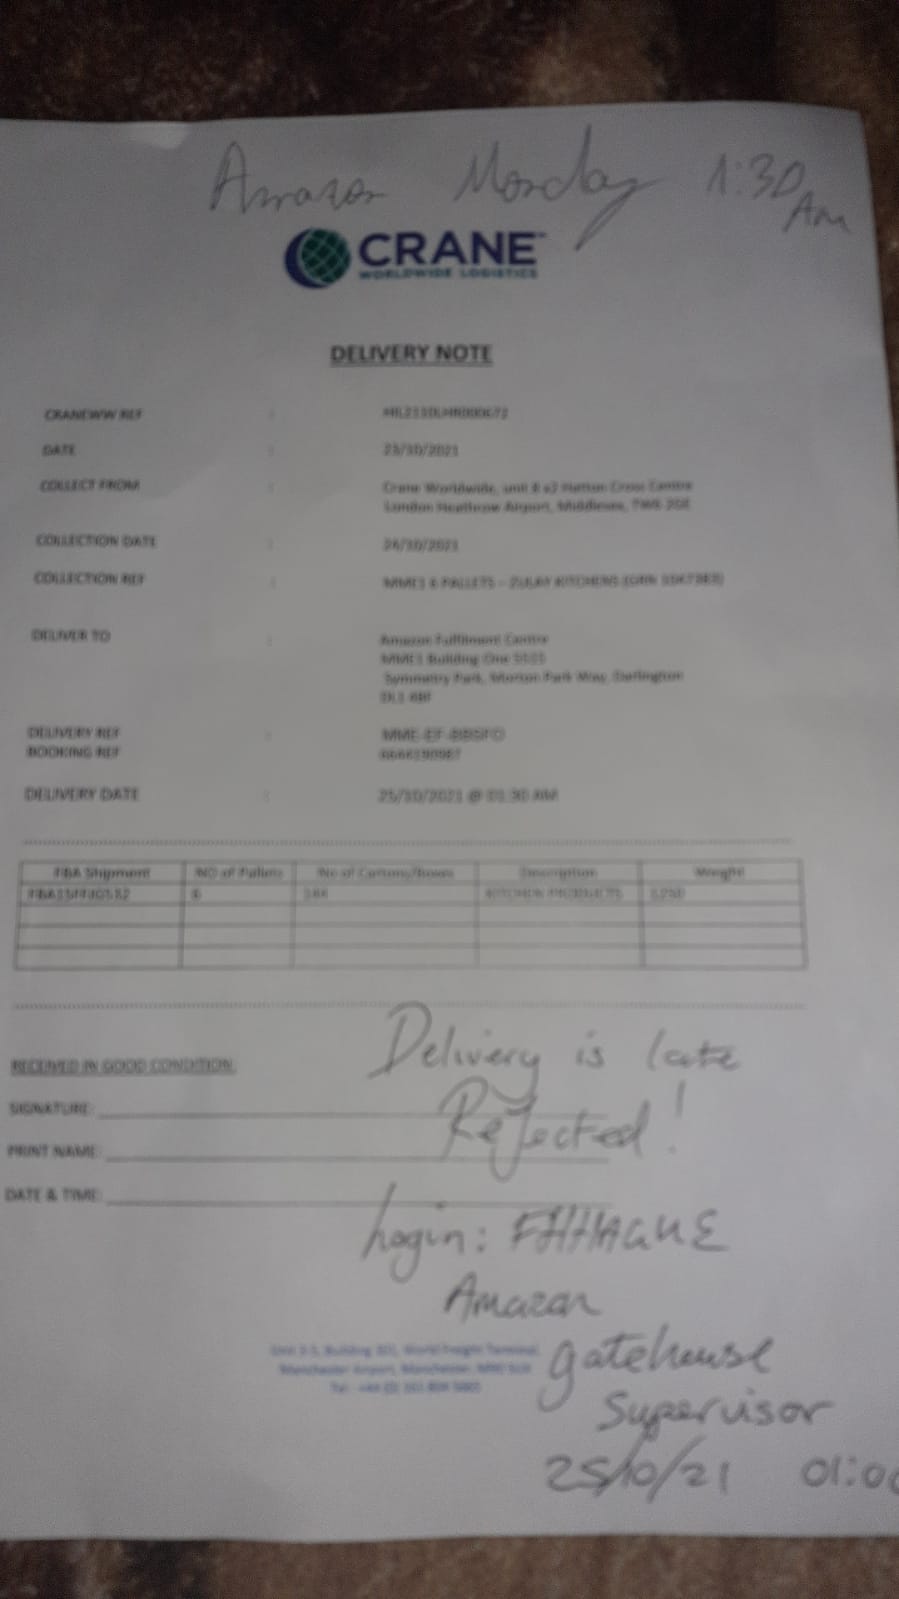 Amazon Monday 1:30 AM
CRANE
WORLDWIDE LOGISTICS
DELIVERY NOTE
CRANEWW REF :
DATE : 23/10/2021
COLLECT FROM : Crane Worldwide, unit 8 x2 Hatton Cross Centre
London Heathrow Airport, Middlesex,
COLLECTION DATE : 24/10/2021
COLLECTION REF : MME1 6 PALLETS - ZULAY KITCHENS
DELIVER TO : Amazon Fulfilment Centre
MME1 Building One
Symmetry Park, Morton Park Way, Darlington
DL1
DELIVERY REF :
BOOKING REF
DELIVERY DATE : 25/10/2021 @ 01:30 AM
FBA Shipment NO of Pallets No of Cartons/Boxes Description Weight
6 KITCHEN PRODUCTS
Delivery is late
RECEIVED IN GOOD CONDITION:
Rejected!
SIGNATURE:
PRINT NAME:
DATE & TIME:
Login: FHHAGUE
Amazon
gatehouse
Supervisor
World Freight Terminal,
Manchester Airport, Manchester,
25/10/21